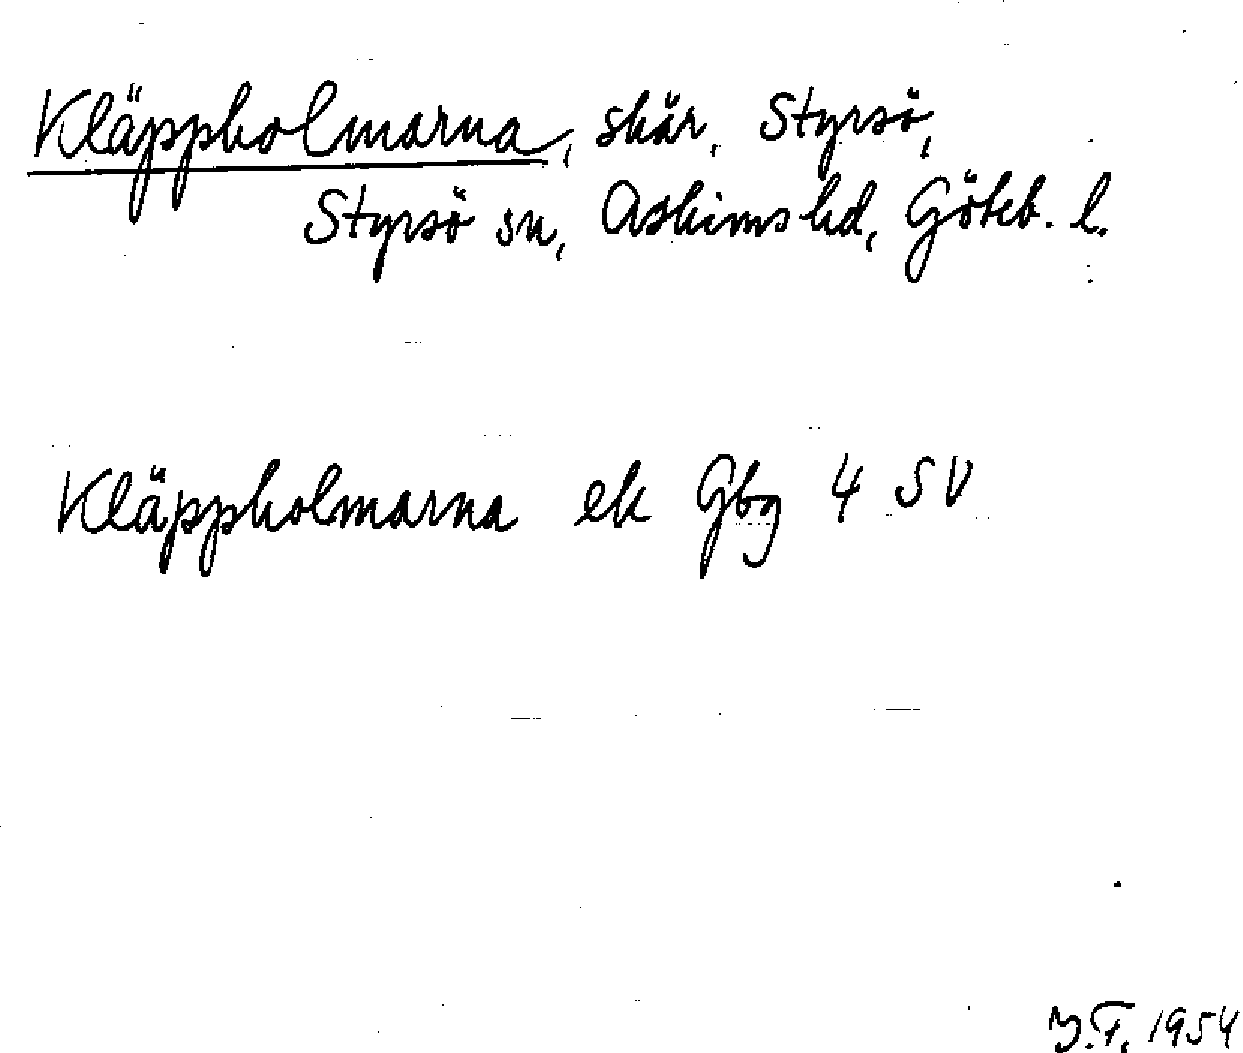 Kläppholmarna, skär, Styrsö,
Styrsö sn, Askims hd, Göteb. l.
Kläppholmarna ek Gbg 4 SV
Y.F. 1954